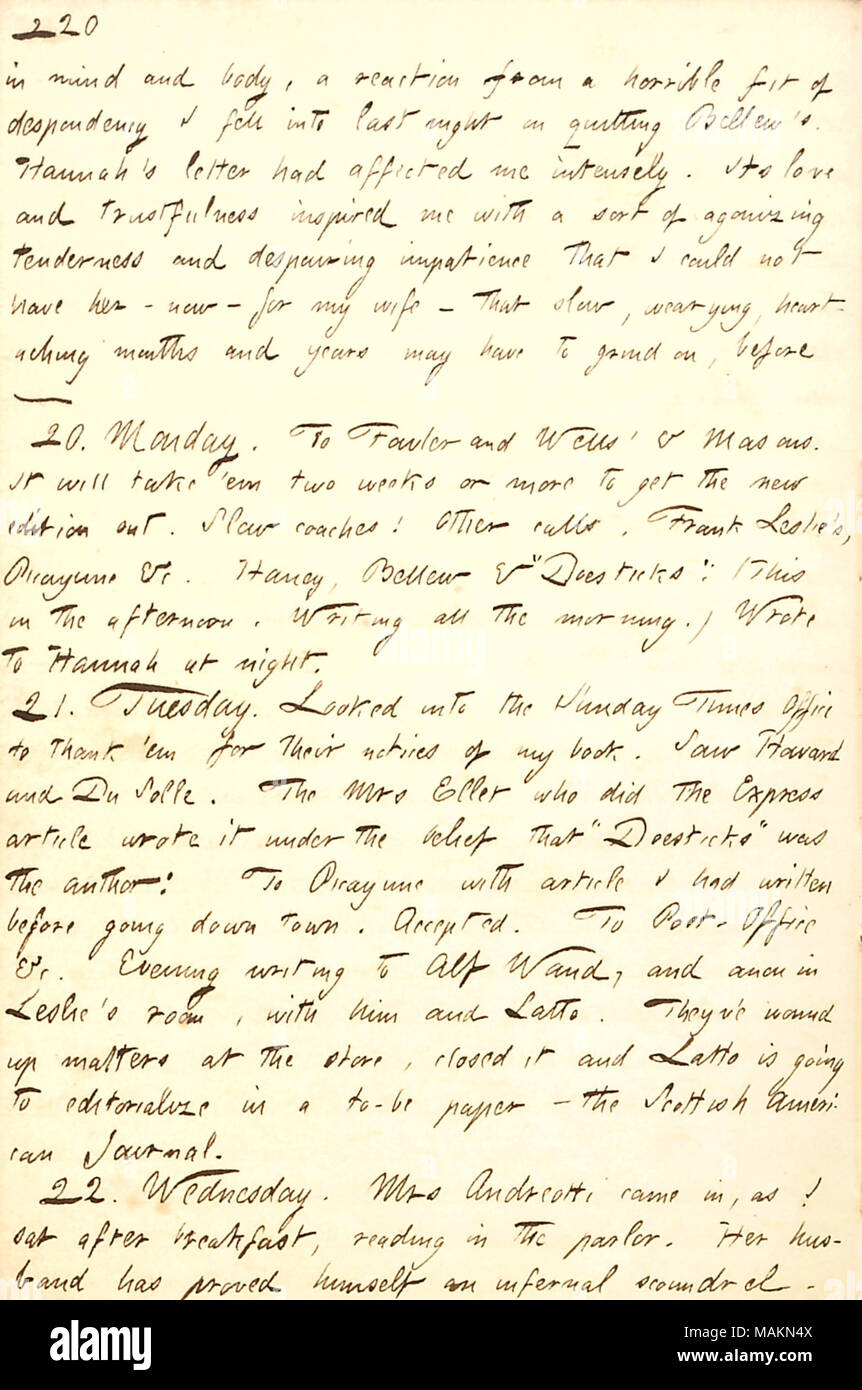 220
in mind and body, a reaction from a horrible fit of
despondency I fell into last night on quitting Bellew's.
Hannah's letter had affected me intensely. Its love
and trustfulness inspired me with a sort of agonizing
tenderness and despairing impatience that I could not
have her - now - for my wife - that slow, wearying, heart-
aching months and years may have to grind on, before
20. Monday. To Fowler and Wells' & Masons.
It will take 'em two weeks or more to get the new
edition out. Slow coaches! Other calls. Frank Leslie's,
Picayune &c. Haney, Bellew & "Doesticks": (This
in the afternoon. Writing all the morning.) Wrote
to Hannah at night.
21. Tuesday. Looked into the Sunday Times Office
to thank 'em for their notices of my book. Saw Howard
and Du Solle. The Mrs Ellet who did the Express
article wrote it under the belief that "Doesticks" was
the author! To Picayune with article I had written
before going down town. Accepted. To Post-Office
&c. Evening writing to Alf Waud, and anon in
Leslie's room, with him and Latto. They've wound
up matters at the store, closed it and Latto is going
to editorialize in a to-be paper - the Scottish Ameri-
can Journal.
22. Wednesday. Mrs Andreotti came in, as I
sat after breakfast, reading in the parlor. Her hus-
band has proved himself an infernal scoundrel -
alamy
Image ID: MAKN4X
www.alamy.com